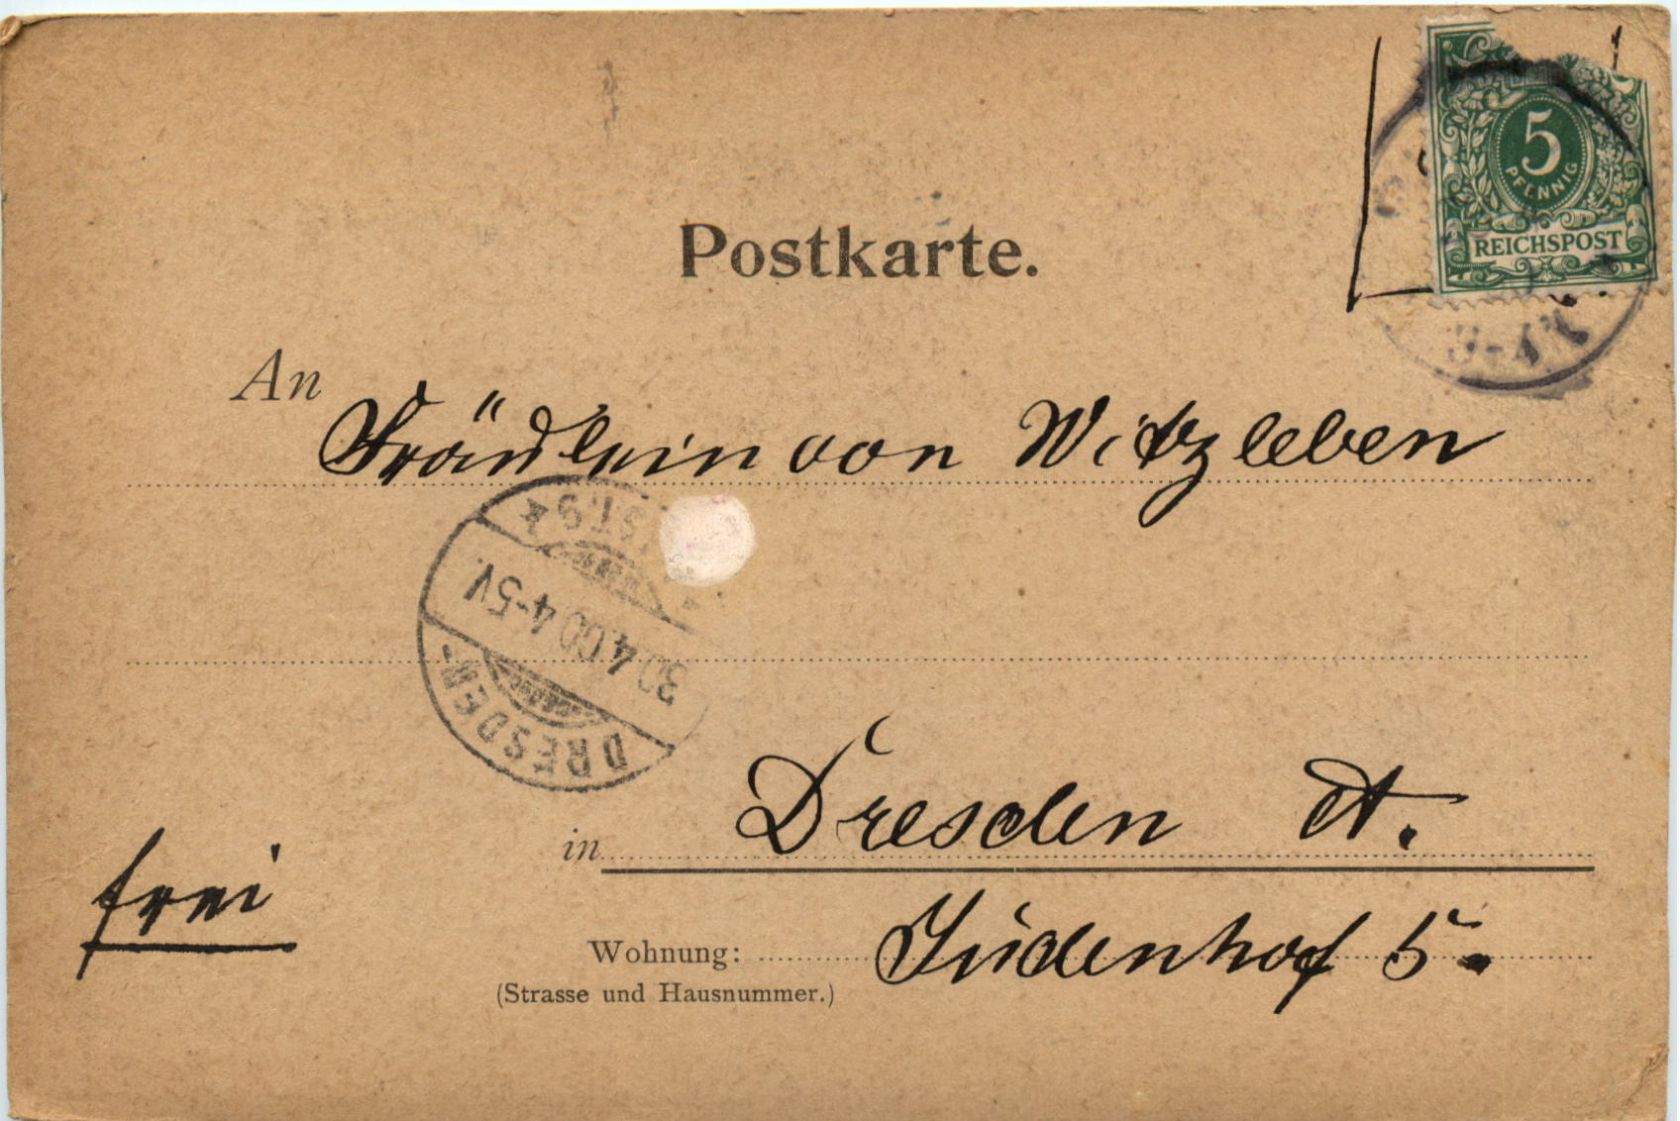 5
PFENNIG
REICHSPOST
Postkarte.
An Fräulein von Witzleben
DRESDEN
30.4.00 4-5V.
in Dresden A.
frei
Wohnung: Jüdenhof 5.
(Strasse und Hausnummer.)